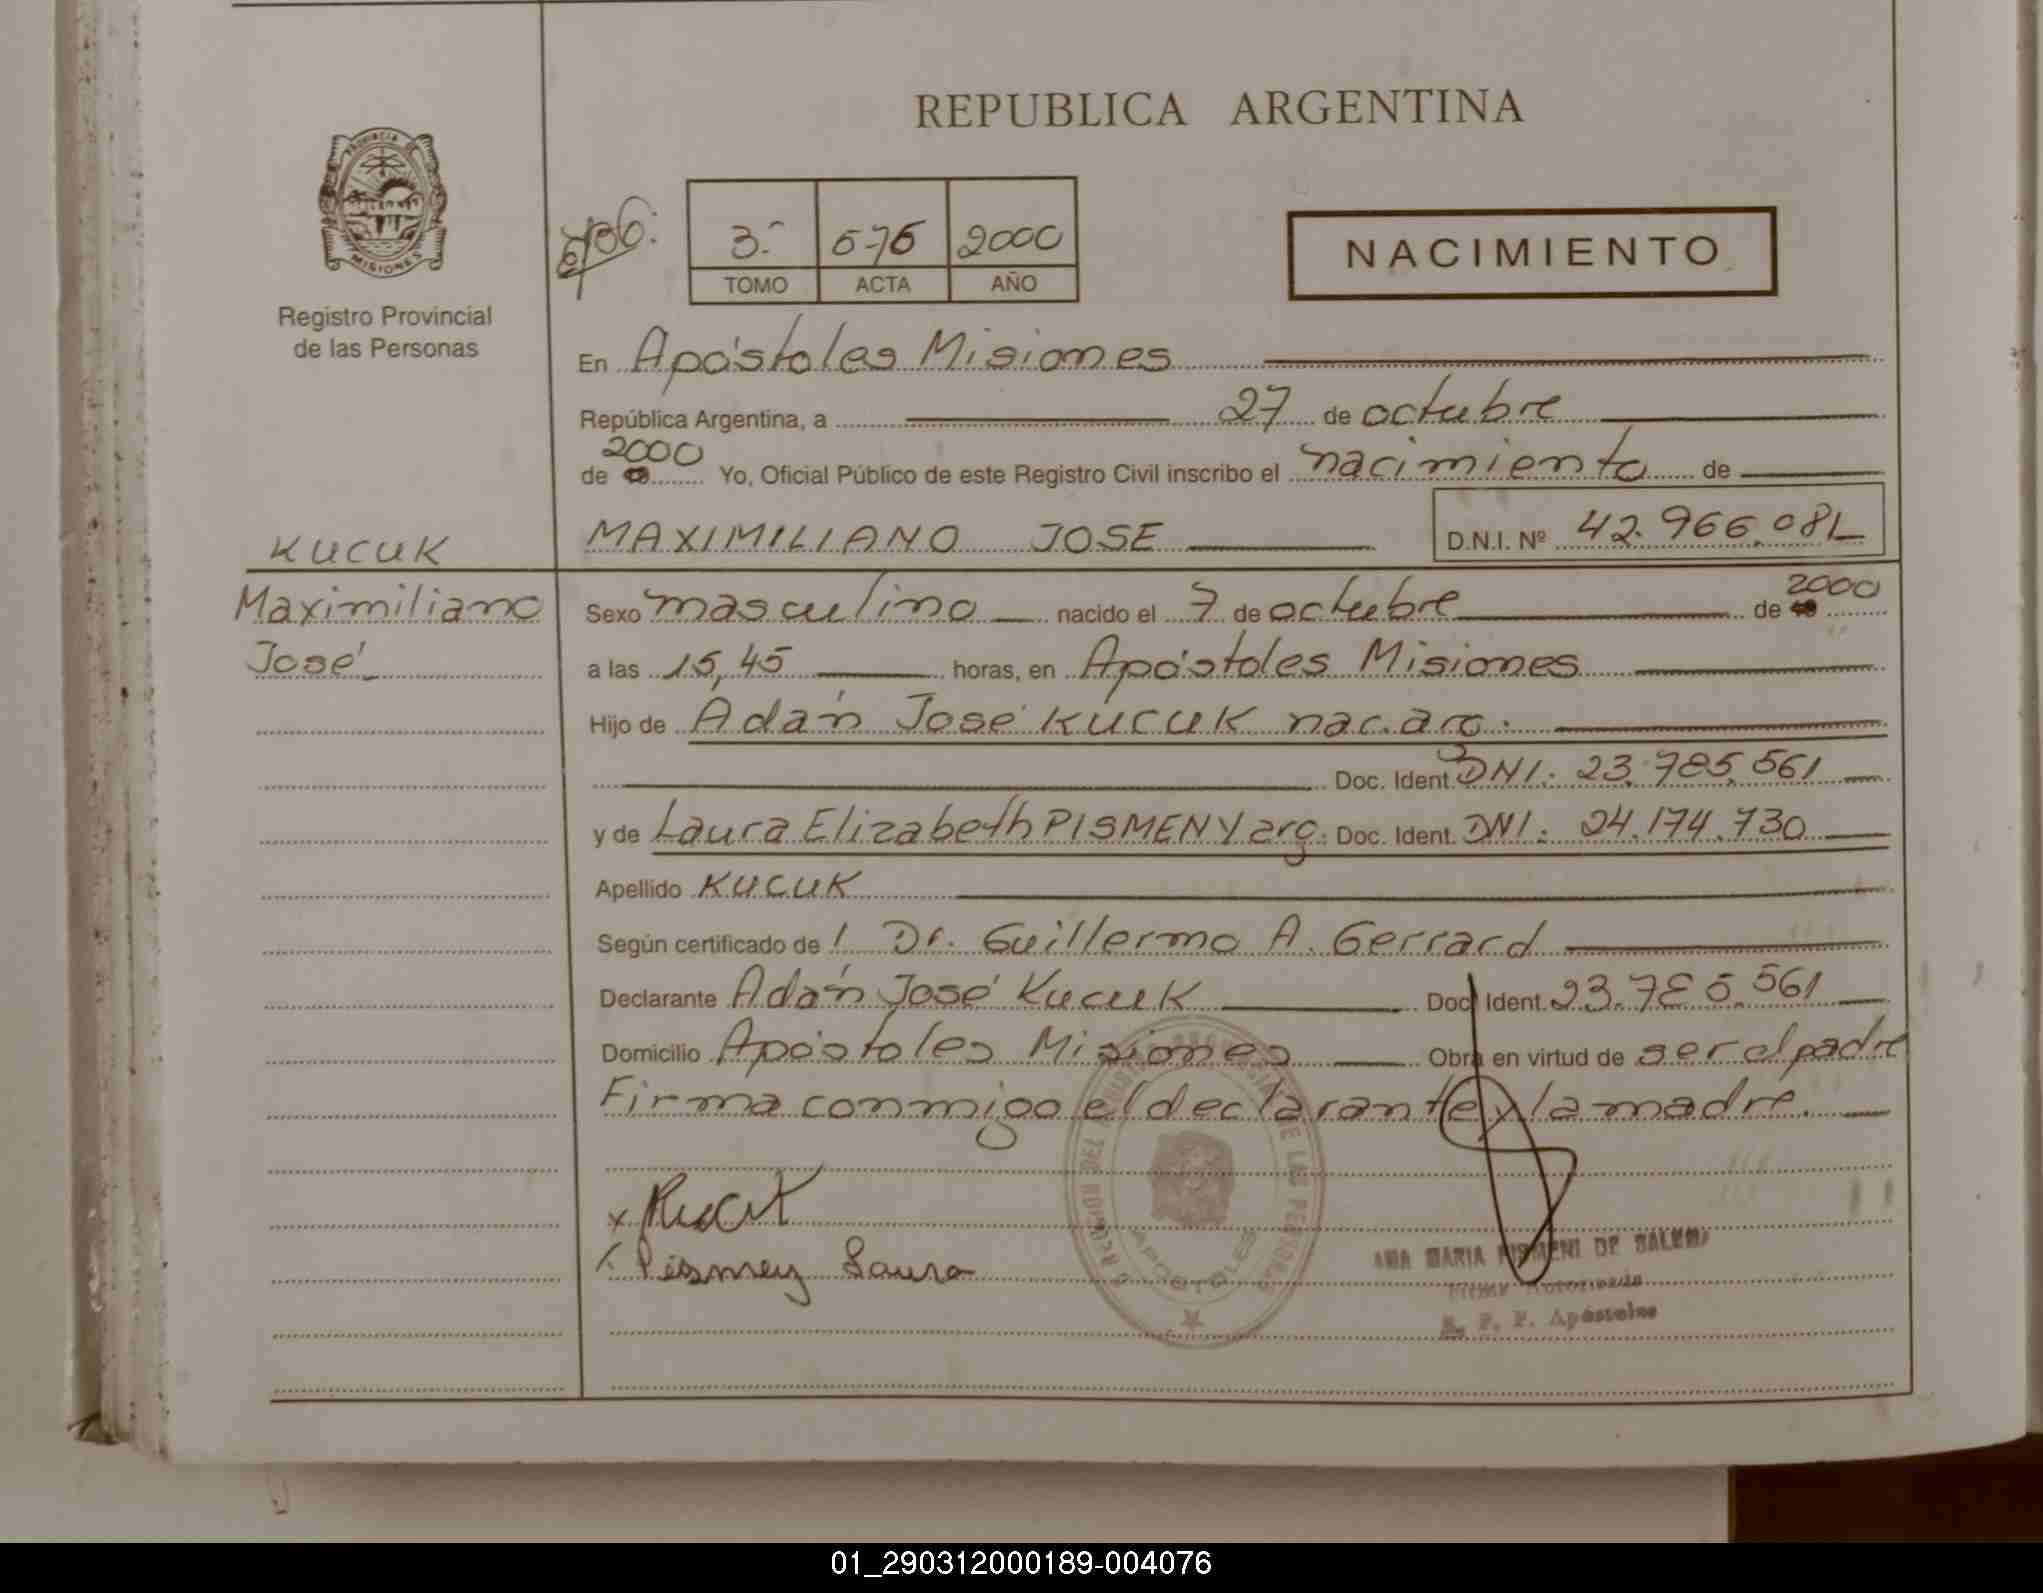 REPUBLICA ARGENTINA
PROVINCIA DE
MISIONES
Registro Provincial
de las Personas
3.- 576 2000
TOMO ACTA AÑO
NACIMIENTO
En Apóstoles Misiones
República Argentina, a 27 de octubre
2000
de Yo, Oficial Público de este Registro Civil inscribo el nacimiento de
KUCUK
MAXIMILIANO JOSE D.N.I. Nº 42.966.081
Maximiliano
José
2000
Sexo masculino nacido el 7 de octubre de
a las 15,45 horas, en Apóstoles Misiones
Hijo de Adán José KUCUK nac. arg.
Doc. Ident. DNI: 23.785.561
y de Laura Elizabeth PISMENY arg. Doc. Ident. DNI: 24.174.730
Apellido KUCUK
Según certificado de l Dr. Guillermo A. Gerrard
Declarante Adán José Kucuk Doc. Ident. 23.785.561
Domicilio Apóstoles Misiones Obra en virtud de ser el padre
Firma conmigo el declarante y la madre.
x Kucuk
x Pismeny Laura
APOSTOLES
ANA MARIA PISMENI DE SALEMI
Firma Autorizada
R. P. P. Apóstoles
01_290312000189-004076